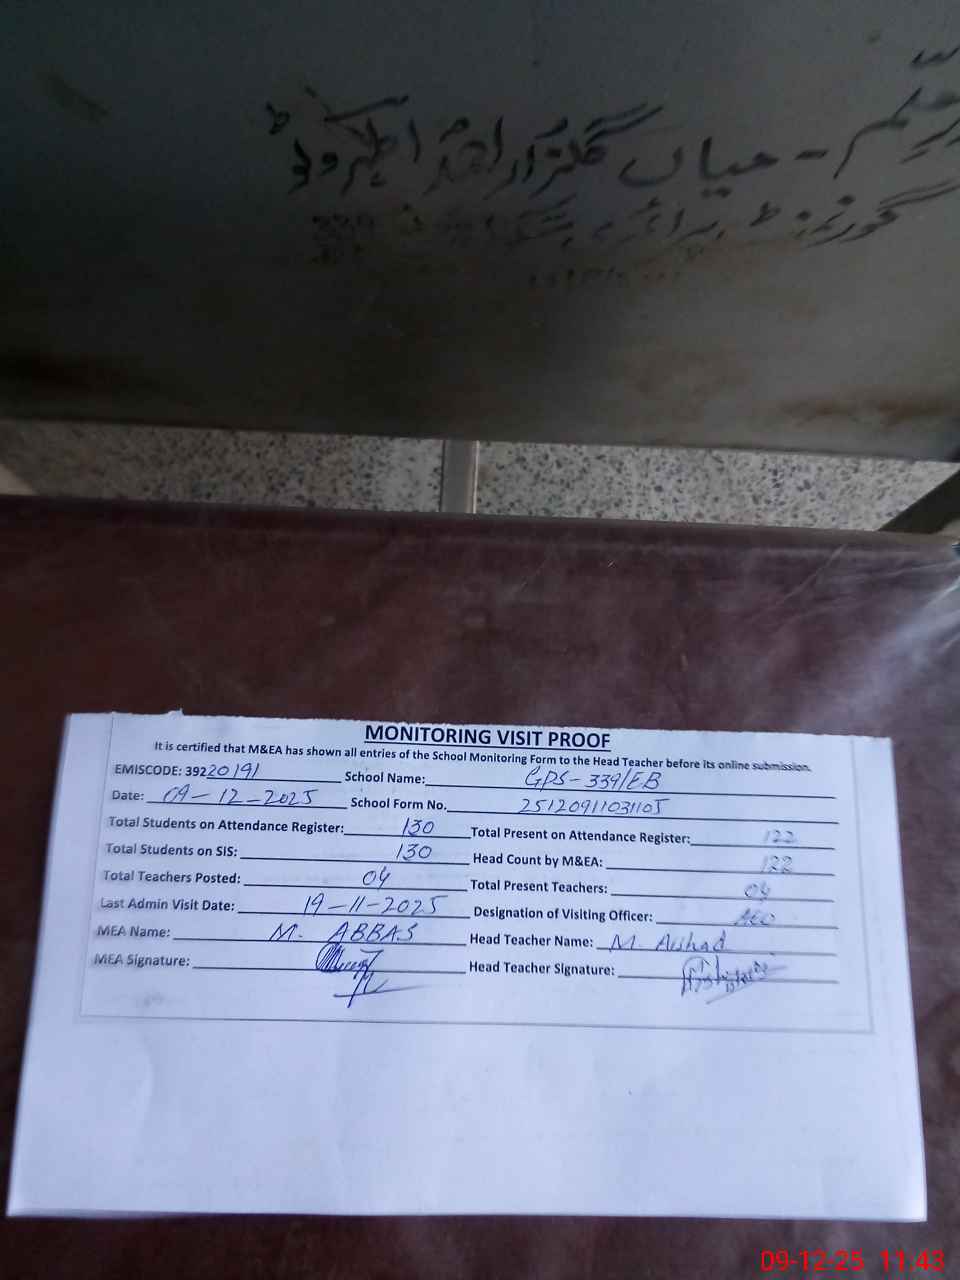 معلم - میاں گلزار احمد
گورنمنٹ پرائمری
MONITORING VISIT PROOF
It is certified that M&EA has shown all entries of the School Monitoring Form to the Head Teacher before its online submission.
EMISCODE: 39220191 School Name: GPS-339/EB
Date: 09-12-2025 School Form No. 25120911031105
Total Students on Attendance Register: 130 Total Present on Attendance Register: 122
Total Students on SIS: 130 Head Count by M&EA: 122
Total Teachers Posted: 04 Total Present Teachers: 04
Last Admin Visit Date: 19-11-2025 Designation of Visiting Officer: AEO
MEA Name: M. ABBAS Head Teacher Name: M. Arshad
MEA Signature: Head Teacher Signature:
09-12-25 11:43